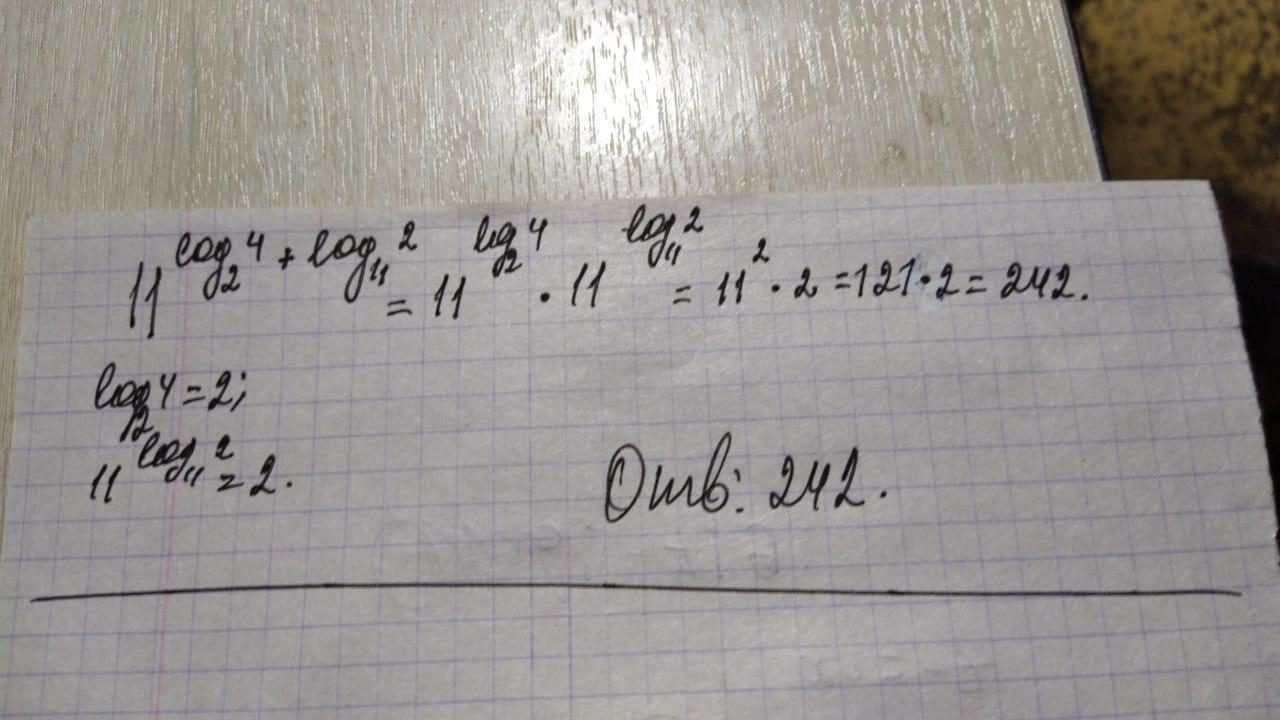 11^{log_2 4 + log_{11} 2} = 11^{log_2 4} · 11^{log_{11} 2} = 11^2 · 2 = 121 · 2 = 242.
log_2 4 = 2;
11^{log_{11} 2} = 2.
Отв: 242.